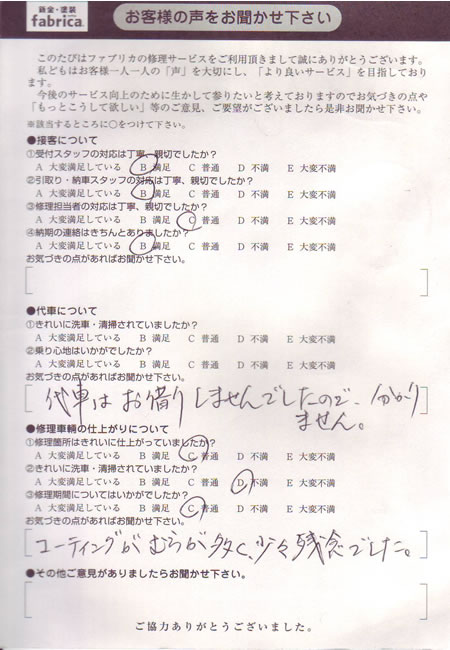 鈑金・塗装
fabrica.
お客様の声をお聞かせ下さい
このたびはファブリカの修理サービスをご利用頂きまして誠にありがとうございます。
私どもはお客様一人一人の「声」を大切にし、「より良いサービス」を目指しており
ます。
今後のサービス向上のために生かして参りたいと考えておりますのでお気づきの点や
「もっとこうして欲しい」等のご意見、ご要望がございましたら是非お聞かせ下さい。
※該当するところに○をつけて下さい。
●接客について
①受付スタッフの対応は丁寧、親切でしたか？
A 大変満足している B 満足 C 普通 D 不満 E 大変不満
②引取り・納車スタッフの対応は丁寧、親切でしたか？
A 大変満足している B 満足 C 普通 D 不満 E 大変不満
③修理担当者の対応は丁寧、親切でしたか？
A 大変満足している B 満足 C 普通 D 不満 E 大変不満
④納期の連絡はきちんとありましたか？
A 大変満足している B 満足 C 普通 D 不満 E 大変不満
お気づきの点があればお聞かせ下さい。
●代車について
①きれいに洗車・清掃されていましたか？
A 大変満足している B 満足 C 普通 D 不満 E 大変不満
②乗り心地はいかがでしたか？
A 大変満足している B 満足 C 普通 D 不満 E 大変不満
お気づきの点があればお聞かせ下さい。
代車はお借りしませんでしたので、分かり
ません。
●修理車輛の仕上がりについて
①修理箇所はきれいに仕上がっていましたか？
A 大変満足している B 満足 C 普通 D 不満 E 大変不満
②きれいに洗車・清掃されていましたか？
A 大変満足している B 満足 C 普通 D 不満 E 大変不満
③修理期間についてはいかがでしたか？
A 大変満足している B 満足 C 普通 D 不満 E 大変不満
お気づきの点があればお聞かせ下さい。
コーティングがむらが多く、少々残念でした。
●その他ご意見がありましたらお聞かせ下さい。
ご協力ありがとうございました。